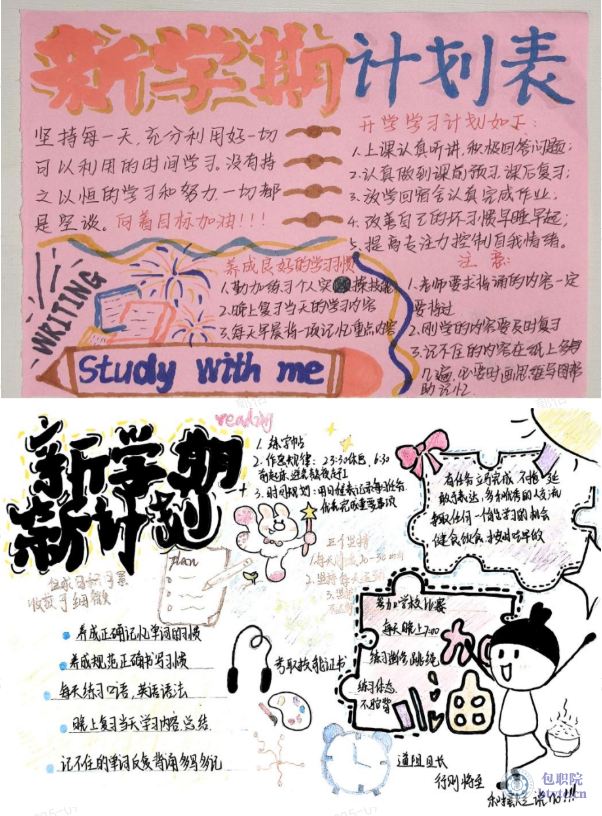 新学期计划表
坚持每一天,充分利用好一切
可以利用的时间学习。没有持
之以恒的学习和努力一切都
是空谈。向着目标加油!!!
开学学习计划如下:
1.上课认真听讲,积极回答问题;
2.认真做到课前预习,课后复习;
3.放学回宿舍认真完成作业;
4.改善自己的坏习惯早睡早起;
5.提高专注力控制自我情绪。
养成良好的学习习惯
1.勤加练习个人实操技能
2.晚上复习当天的学习内容
3.每天早晨将一段记忆重点内容
注意:
1.老师要求背诵的内容一定
要背过
2.刚学的内容要及时复习
3.记不住的内容在纸上多写
几遍,必要时画思维导图帮
助记忆
WRITING
Study with me
新学期
新计划
reading
1.练字帖
2.作息规律:23:30休息,6:30
3.时间规划:用日程表记录每项任务,
优先完成重要事项
plan
始于
收获于细微
五个坚持
1.每天阅读20-30
2.坚持每天运动
3.坚持
有任务立马完成,不拖延
敢于表达,多和优秀的人交流
争取任何一个能学习的机会
健食饮食,按时吃早饭
参加学校比赛
每天晚上7:00
练习测写跳绳
练习体态
不驼背
养成正确记忆单词的习惯
养成规范正确书写习惯
每天练习口语,英语语法
晚上复习当天学习内容,总结
记不住的单词反复背诵多写多记
考取技能证书
道阻且长
行则将至
和拖延说NO!!!
包职院
btvtc.cn